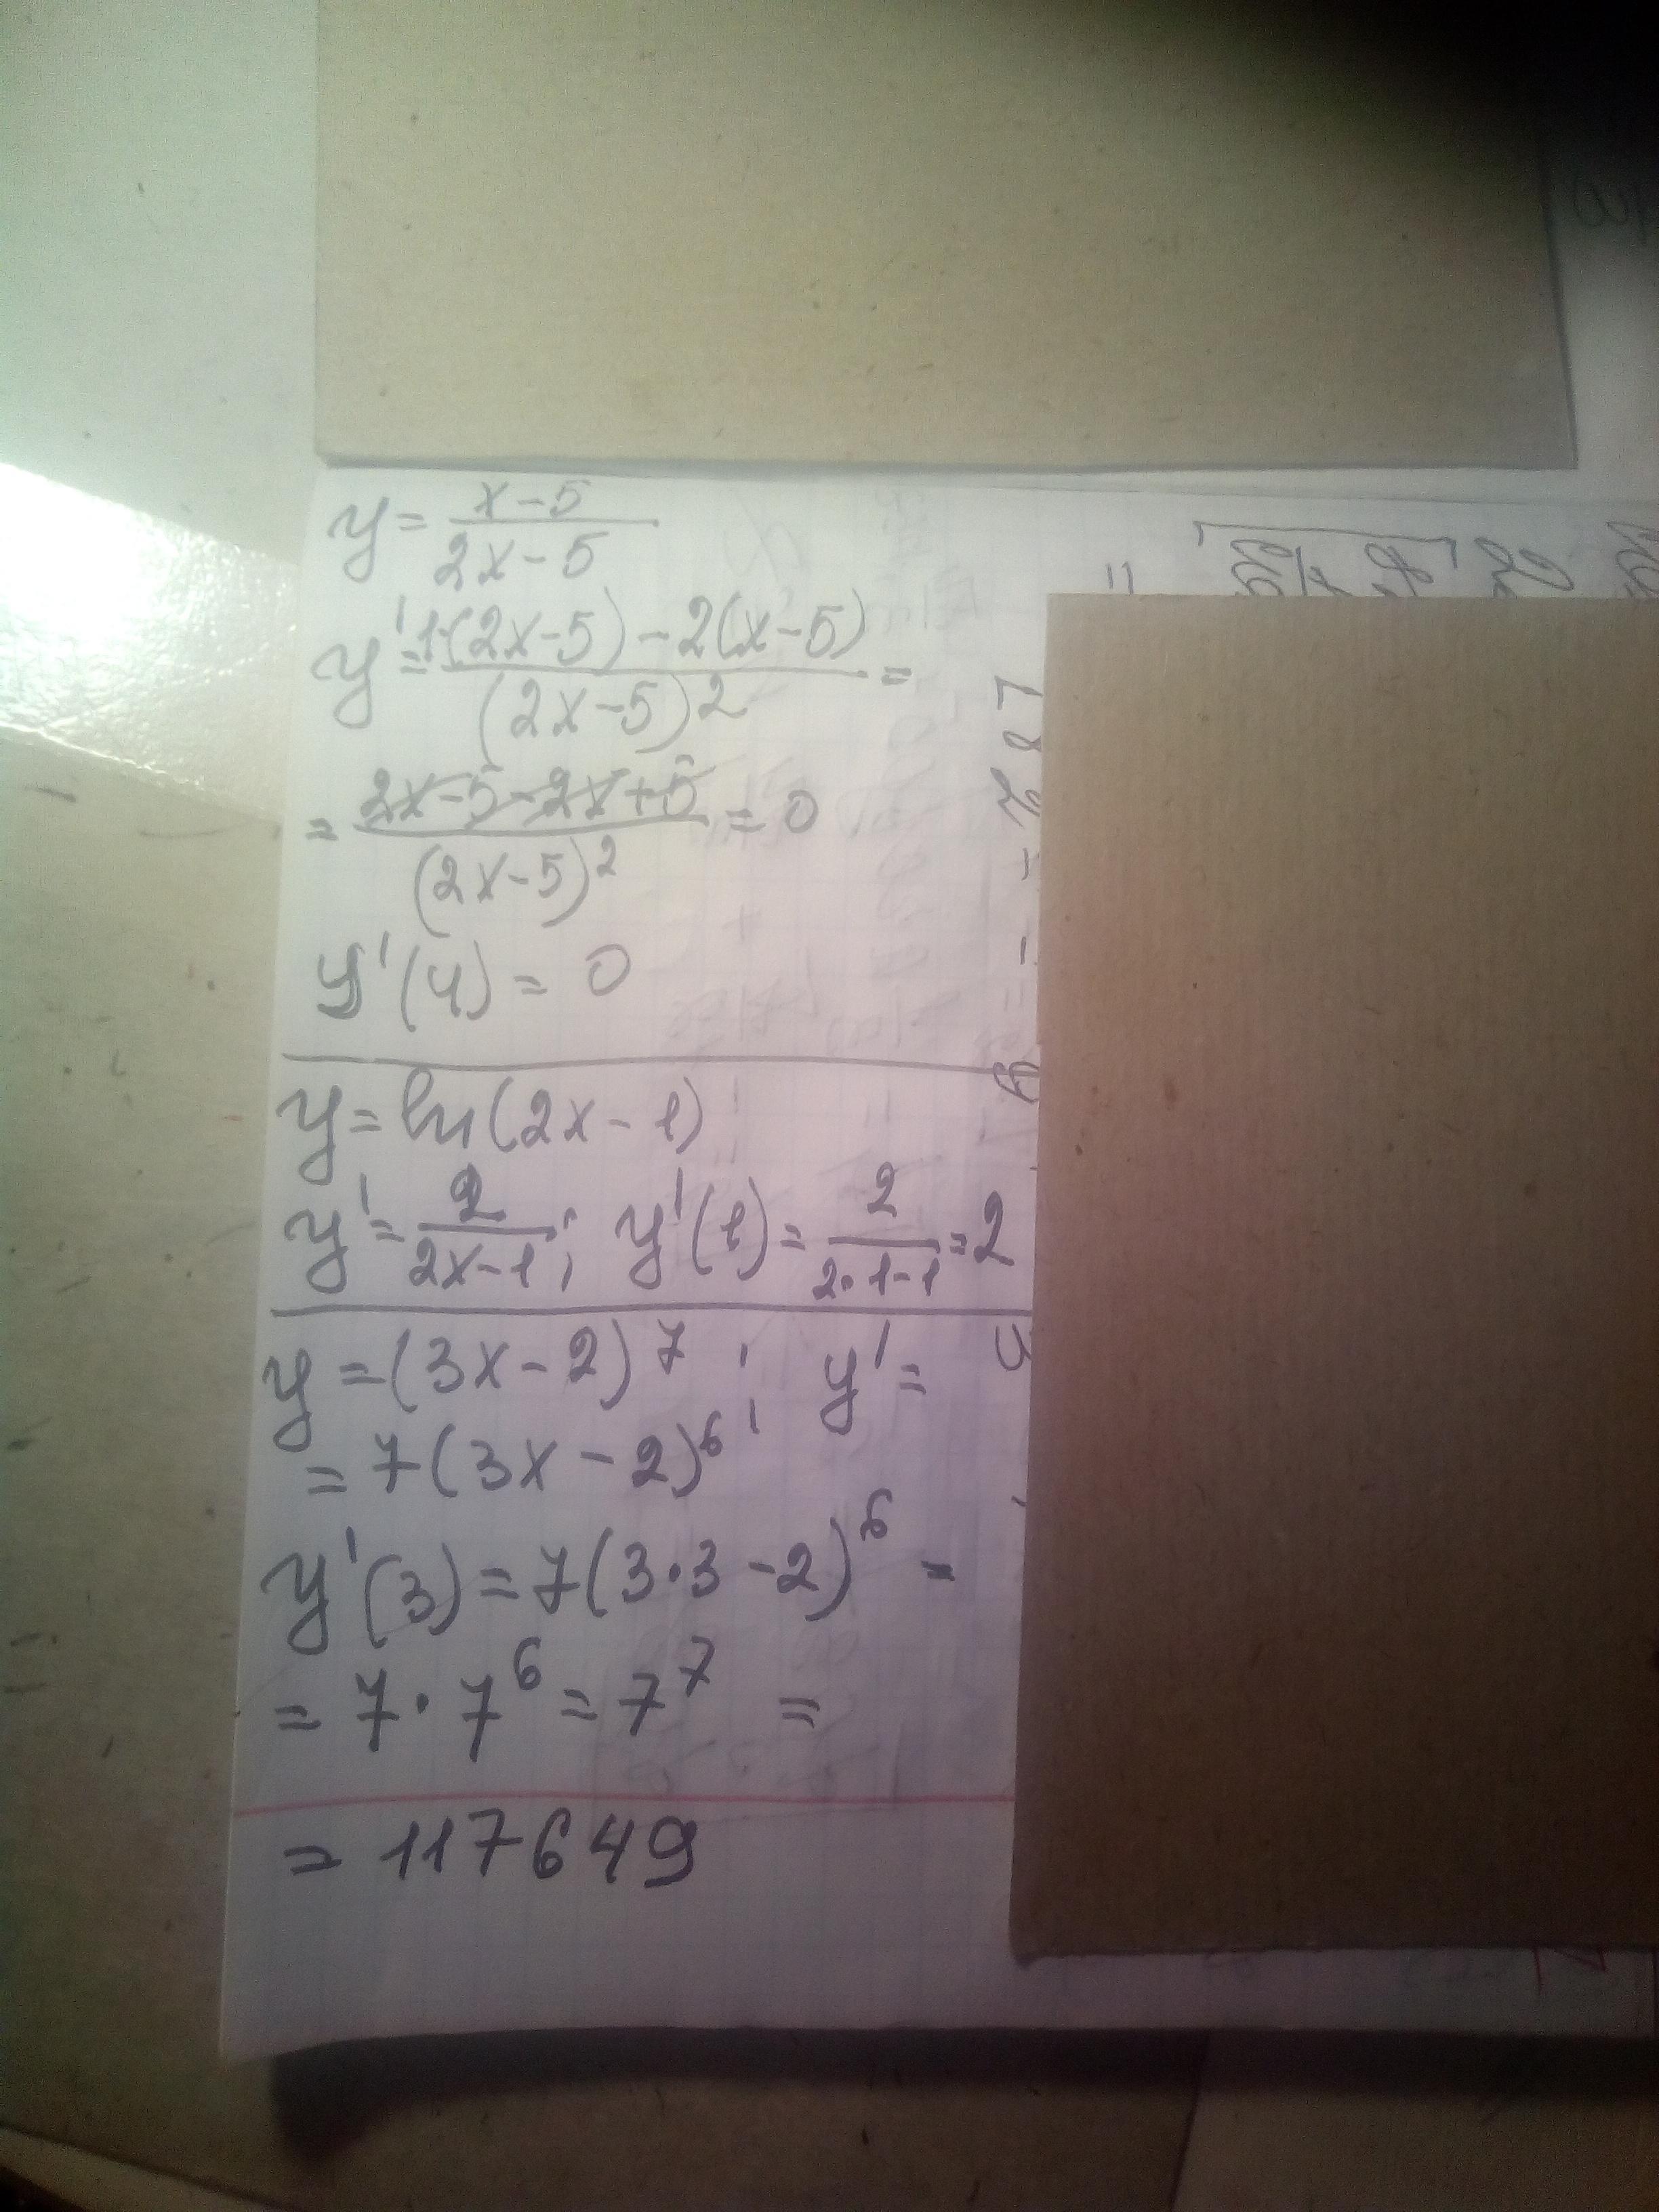 y = (x-5)/(2x-5)
y' = (1·(2x-5) - 2(x-5))/(2x-5)² =
= (2x-5-2x+5)/(2x-5)² = 0
y'(4) = 0
y = ln(2x-1)
y' = 2/(2x-1); y'(1) = 2/(2·1-1) = 2
y = (3x-2)⁷; y' =
= 7(3x-2)⁶;
y'(3) = 7(3·3-2)⁶ =
= 7·7⁶ = 7⁷ =
= 117649